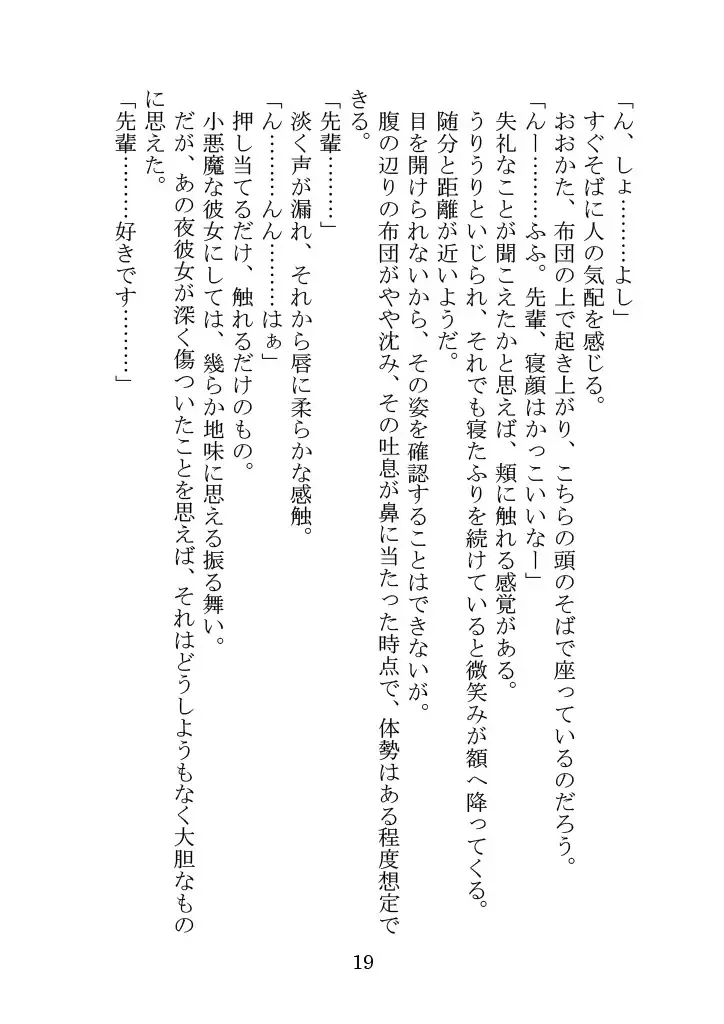 「ん、しょ………よし」
すぐそばに人の気配を感じる。
おおかた、布団の上で起き上がり、こちらの頭のそばで座っているのだろう。
「んー………ふふ。先輩、寝顔はかっこいいなー」
失礼なことが聞こえたかと思えば、頬に触れる感覚がある。
うりうりといじられ、それでも寝たふりを続けていると微笑みが額へ降ってくる。
随分と距離が近いようだ。
目を開けられないから、その姿を確認することはできないが。
腹の辺りの布団がやや沈み、その吐息が鼻に当たった時点で、体勢はある程度想定で
きる。
「先輩………」
淡く声が漏れ、それから唇に柔らかな感触。
「ん………んん………はぁ」
押し当てるだけ、触れるだけのもの。
小悪魔な彼女にしては、幾らか地味に思える振る舞い。
だが、あの夜彼女が深く傷ついたことを思えば、それはどうしようもなく大胆なもの
に思えた。
「先輩………好きです………」
19